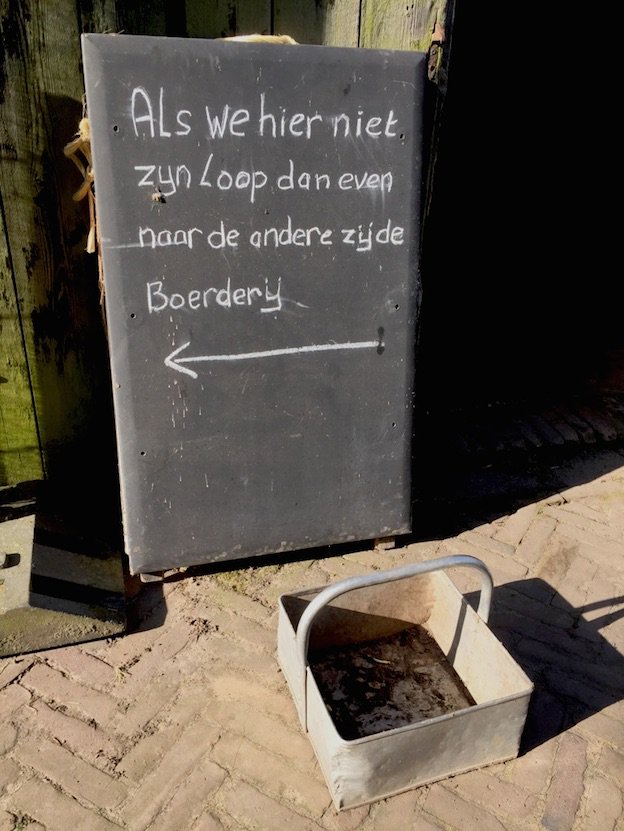 Als we hier niet
zyn Loop dan even
naar de andere zijde
Boerdery